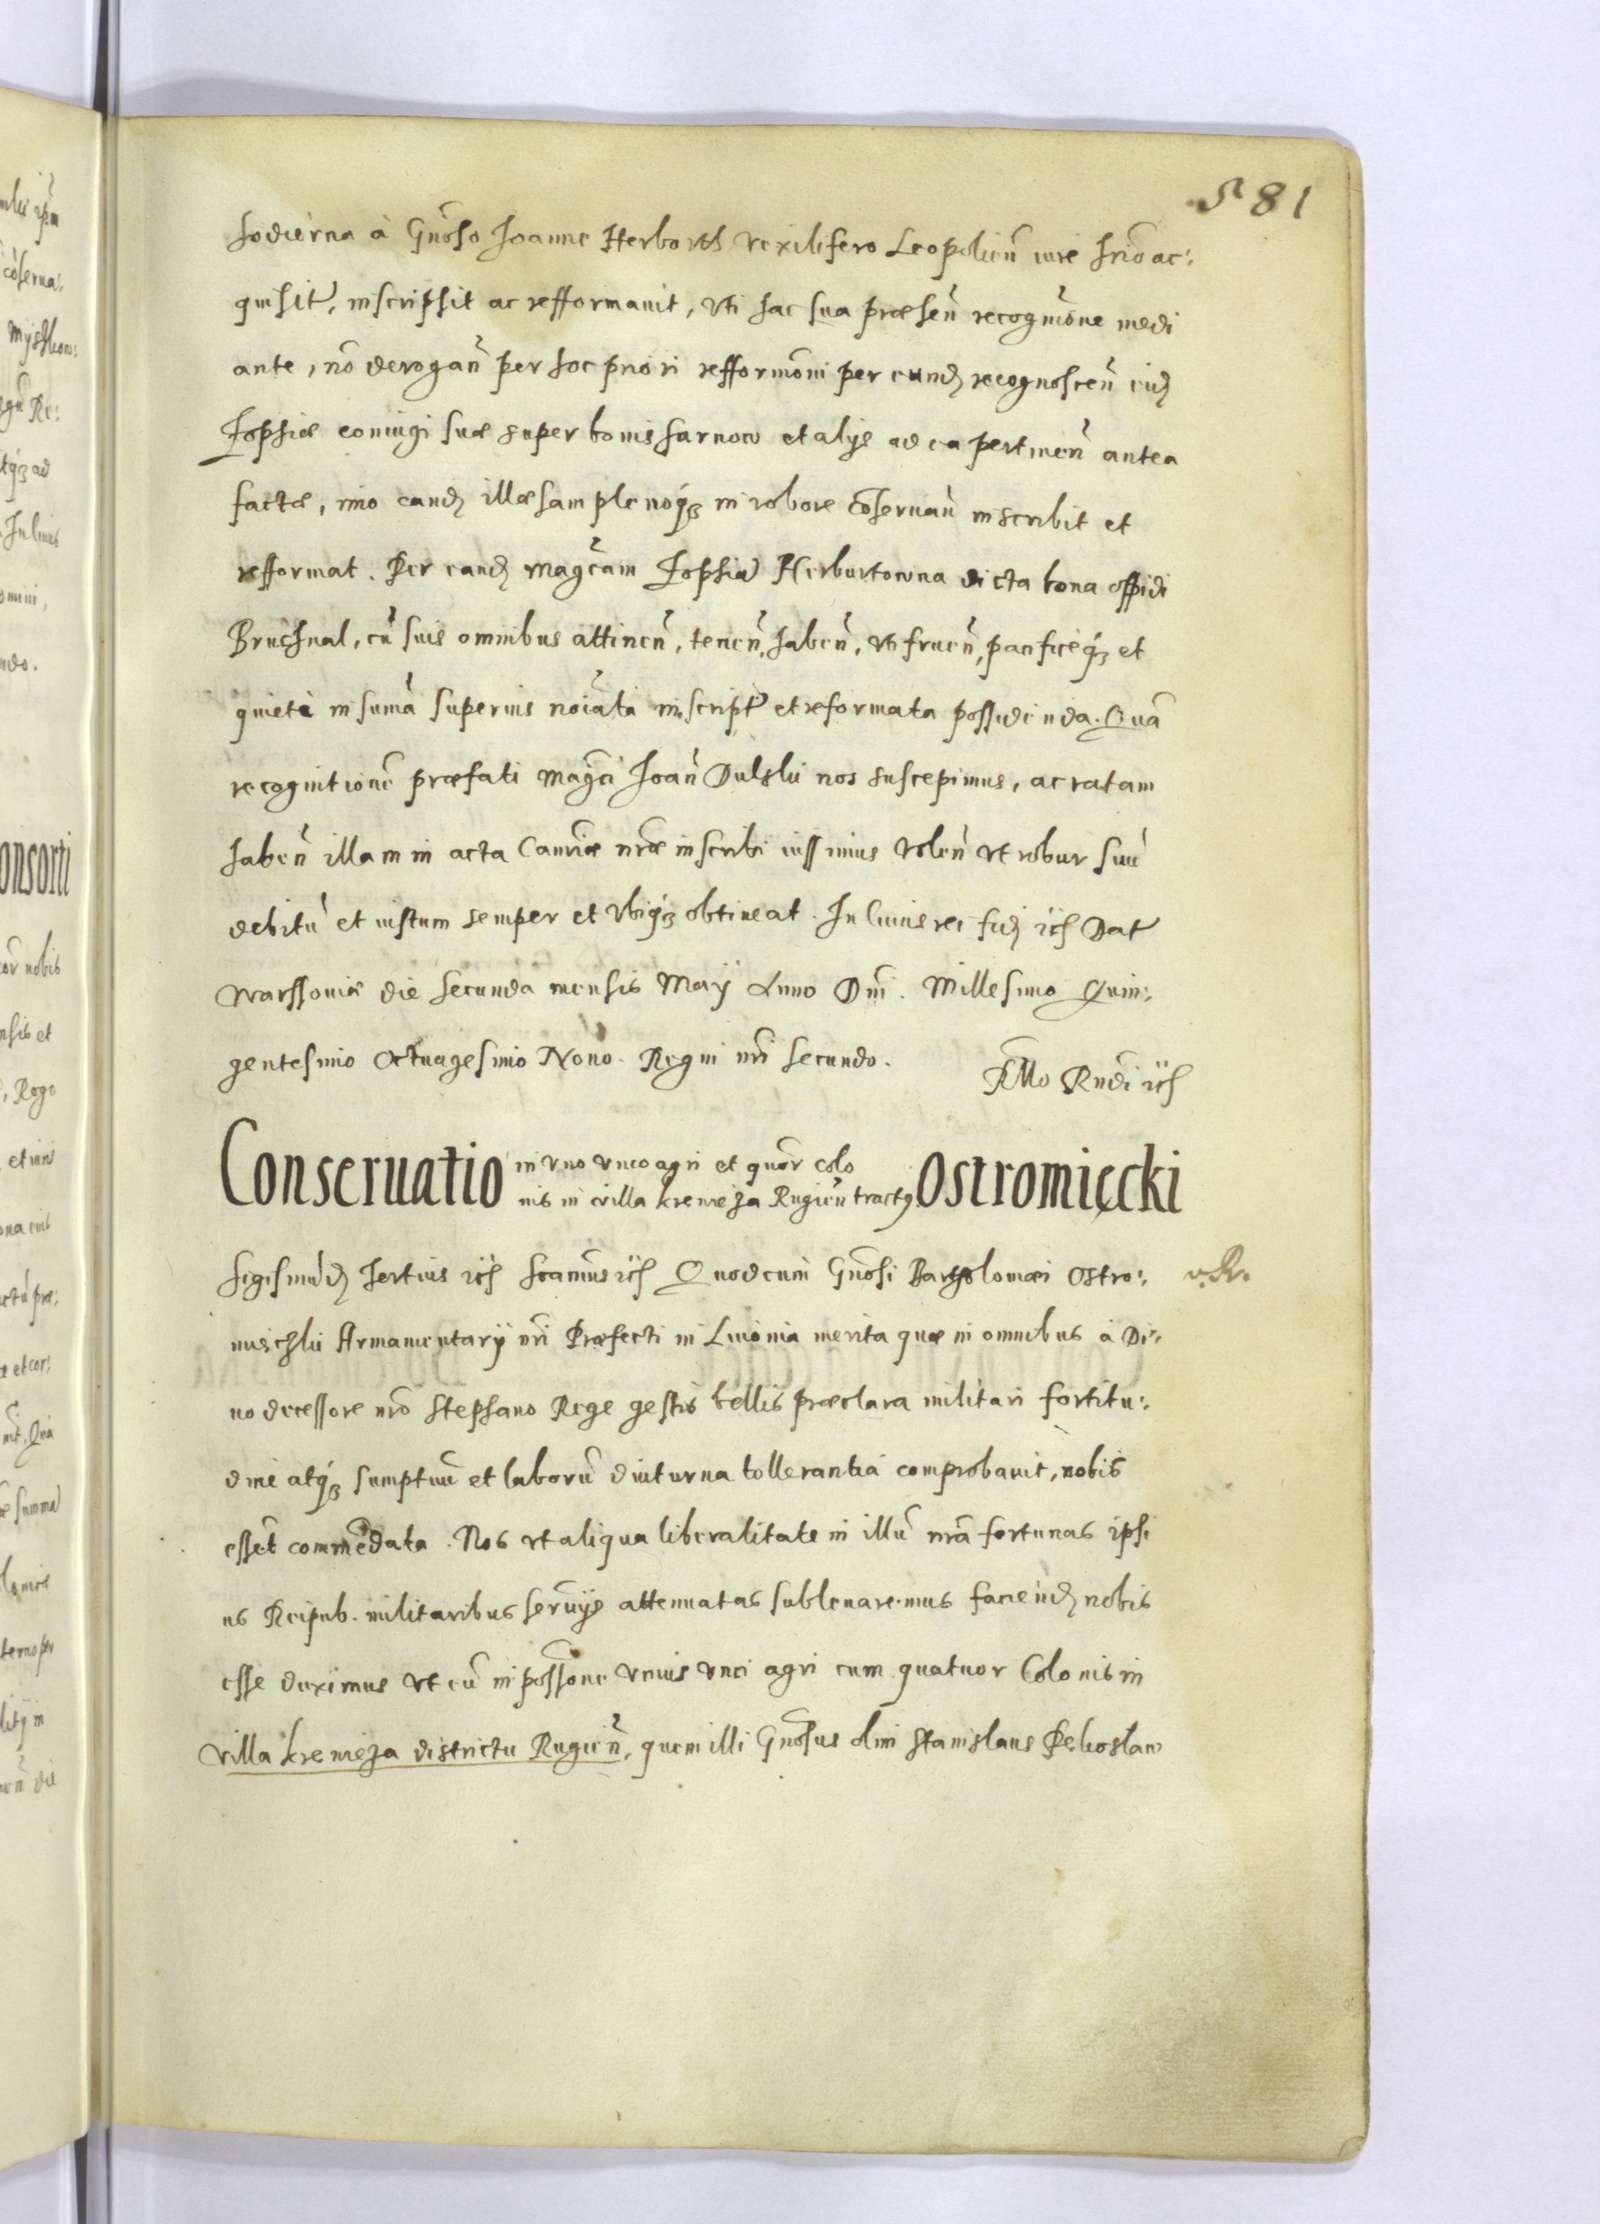 581
hodierna à Gnoso Joanne Herborth Vexilifero Leopolien iure
quisit, inscripsit ac refformauit, vti hac sua præsen recognione medi
ante, nõ derogan per hoc priori refformoni per eund recognoscen eid
Zophiæ coniugi suæ super bonis Tarnow et alys ad ea pertinen antea
factæ, imo eand illæsam plenoq in robore coseruan inscribit et
refformat. Per eand Magcam Zophia Herburtowna dicta bona oppidi
Bruchnal, cũ suis omnibus attinen, tenen, haben, vti fruen, pacificeq et
quietè in sumã superius noiata inscript et reformata possidenda. Quã
recognitionẽ præfati Magci Joan Dulski nos suscepimus, ac ratam
haben illam in acta Cancriæ nræ inscribi iussimus volen vt robur suũ
debitũ et iustum semper et vbiq obtineat. In Cuius rei fid ict Dat
Warssouiæ die secunda mensis Maij Anno Dni. Millesimo Quin:
gentesimo Octuagesimo Nono. Regni nri secundo.
Rndi ict
Conseruatio in vno vnco agri et quor colo
nis in villa kremeza Rugien tractq Ostromięcki
Sigismũd Tertius ict Scamus ict Quod cum Gnosi Bartholomæi Ostro:
Armamentarij nri Præfecti in Liuonia merita quæ in omnibus à Di:
uo decessore nro Stephano Rege gestis bellis præclara militari fortitu:
dine atq sumptuũ et laborũ diuturna tollerantia comprobauit, nobis
essẽt commẽdata. Nos vt aliqua liberalitate in illũ nrã fortunas ipsi
us Reipub. militaribus seruijs attenuatas subleuaremus faciend nobis
esse duximus vt eũ in possone vnius vnci agri cum quatuor Colonis in
villa kremeza districtu Rugien, quem illi Gnosus olim Stanislaus